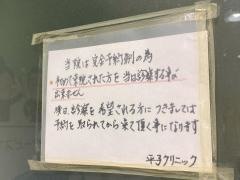 当院は完全予約制の為
初めて来院された方を当日診察する事が
出来ません
後日、診察を希望される方につきましては
予約を取られてから来て頂く事になります
平子クリニック